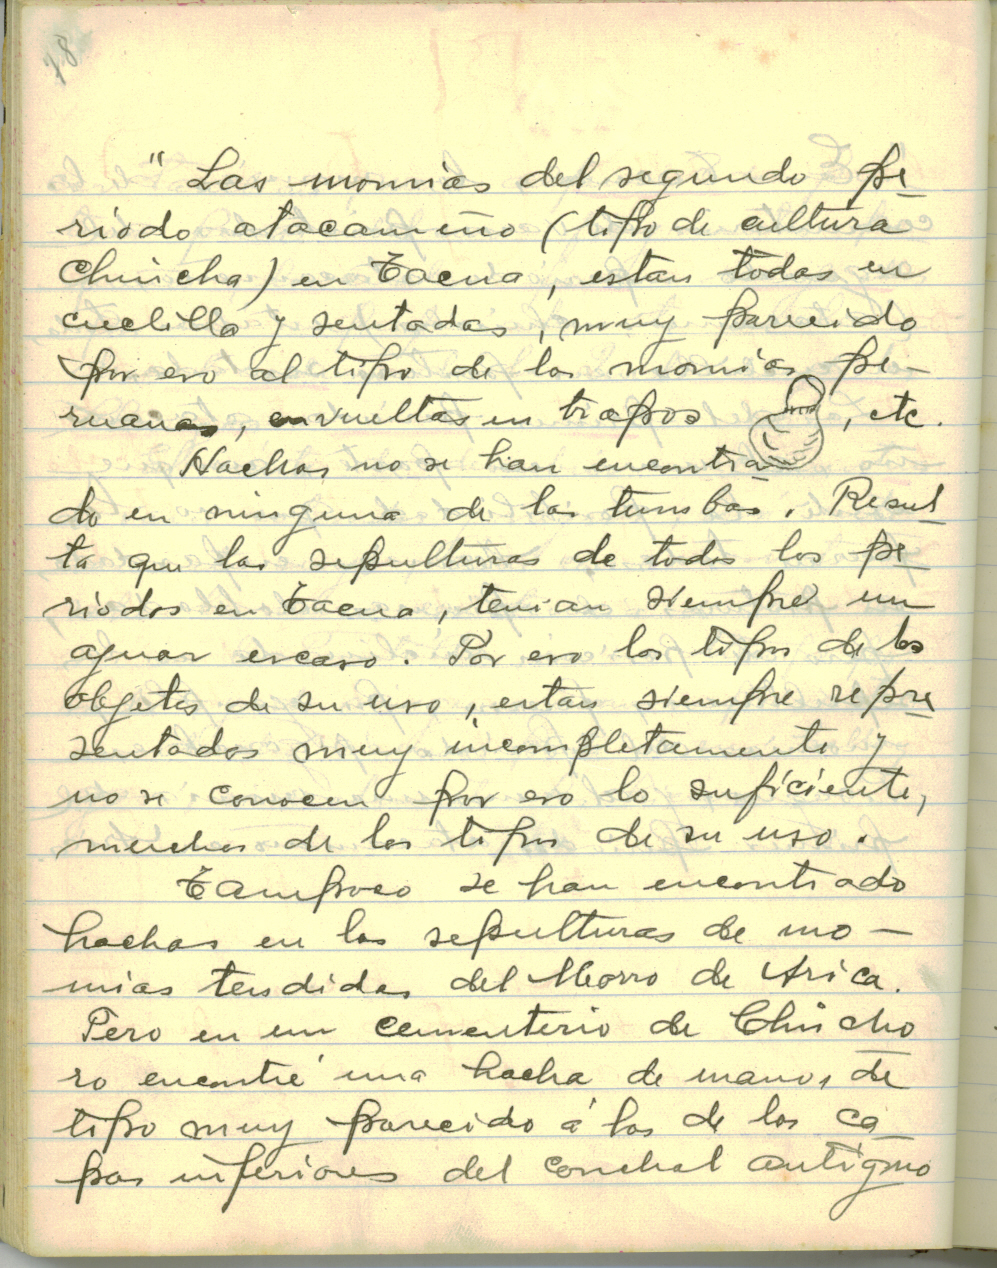 78
" Las momias del segundo pe
riodo atacameño (tipo de cultura
Chincha) en Tacna, estan todas en
cuclilla y sentadas, muy parecido
por eso al tipo de las momias pe-
ruanas, envueltas en trapos , etc.
Hachas no se han encontra
do en ninguna de las tumbas. Resul
ta que las sepulturas de todos los pe
riodos en Tacna, tenian siempre un
ajuar escaso. Por eso los tipos de los
objetos de su uso, estan siempre repre
sentados muy incompletamente y
no se conocen por eso lo suficiente,
muchos de los tipos de su uso.
Tampoco se han encontrado
hachas en las sepulturas de mo-
mias tendidas del Morro de Arica.
Pero en un cementerio de Chincho
ro encontré una hacha de mano, de
tipo muy parecido á las de las ca
pas inferiores del conchal antiguo